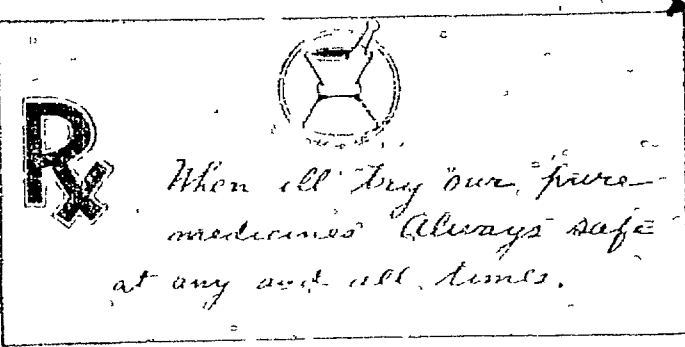 Rx
When ill try our pure
medicines Always safe
at any and all times.